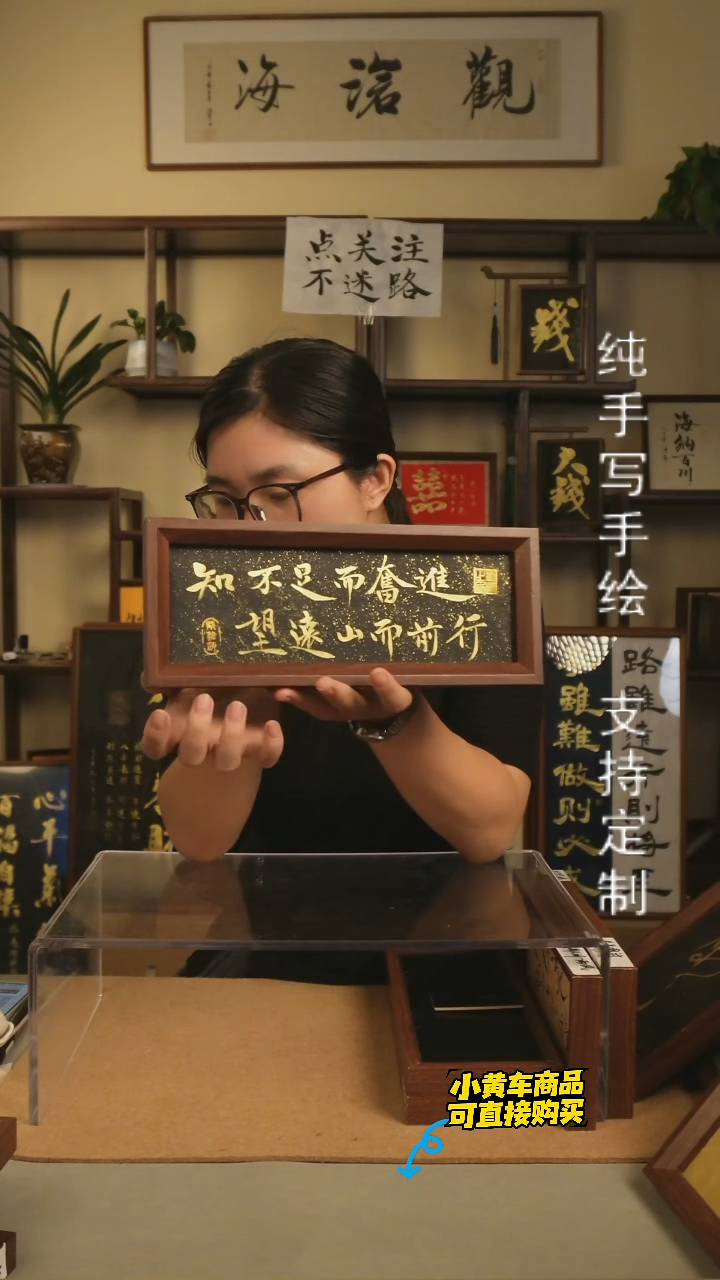 海滄觀
点关注
不迷路
錢
海納百川
大錢
囍
知不足而奮進
望遠山而前行
纯手写手绘 支持定制
雖難做则必成
路雖遠行則將至
心平氣
百福自集
小黄车商品
可直接购买